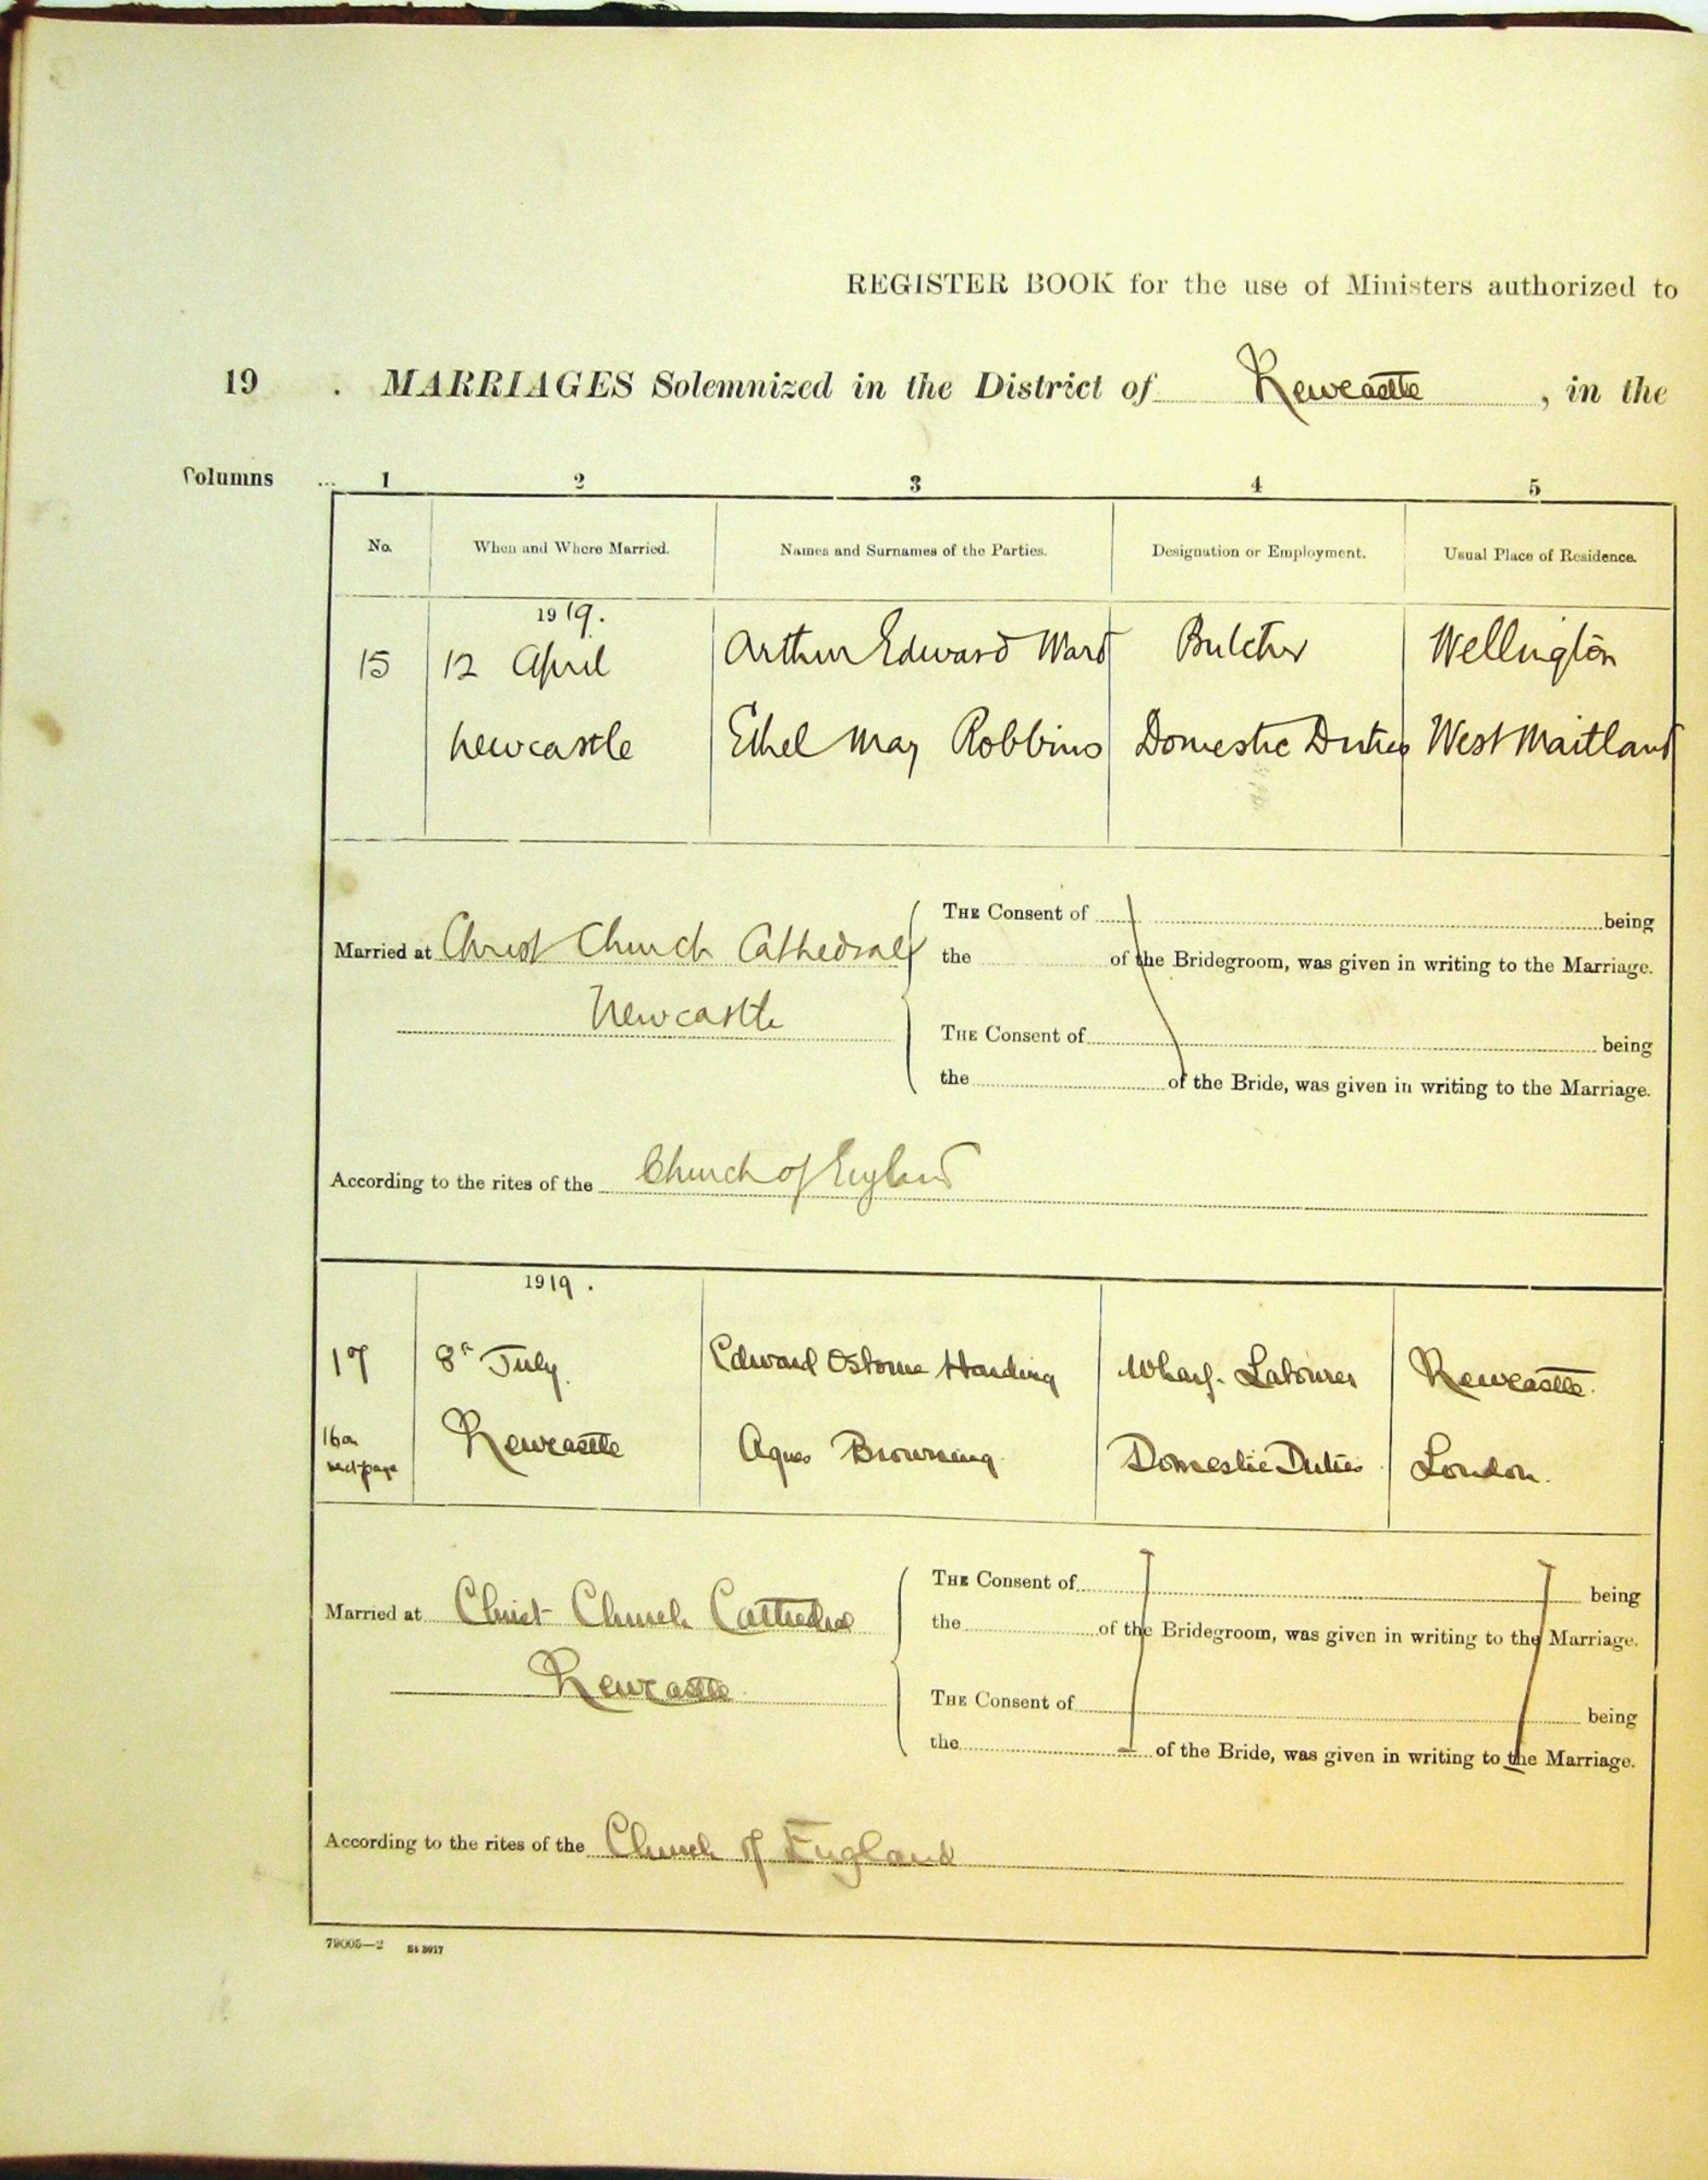 REGISTER BOOK for the use of Ministers authorized to
19 . MARRIAGES Solemnized in the District of Newcastle , in the
Columns ... 1 2 3 4 5
No. When and Where Married. Names and Surnames of the Parties. Designation or Employment. Usual Place of Residence.
1919.
15 12 April Arthur Edward Ward Butcher Wellington
Newcastle Ethel May Robbins Domestic Duties West Maitland
THE Consent of being
Married at Christ Church Cathedral the of the Bridegroom, was given in writing to the Marriage.
Newcastle
THE Consent of being
the of the Bride, was given in writing to the Marriage.
According to the rites of the Church of England
1919.
17 8th July. Edward Osborne Harding Wharf Labourer Newcastle.
16 on next page Newcastle Agnes Browning Domestic Duties London.
THE Consent of being
Married at Christ Church Cathedral the of the Bridegroom, was given in writing to the Marriage.
Newcastle
THE Consent of being
the of the Bride, was given in writing to the Marriage.
According to the rites of the Church of England
79005—2